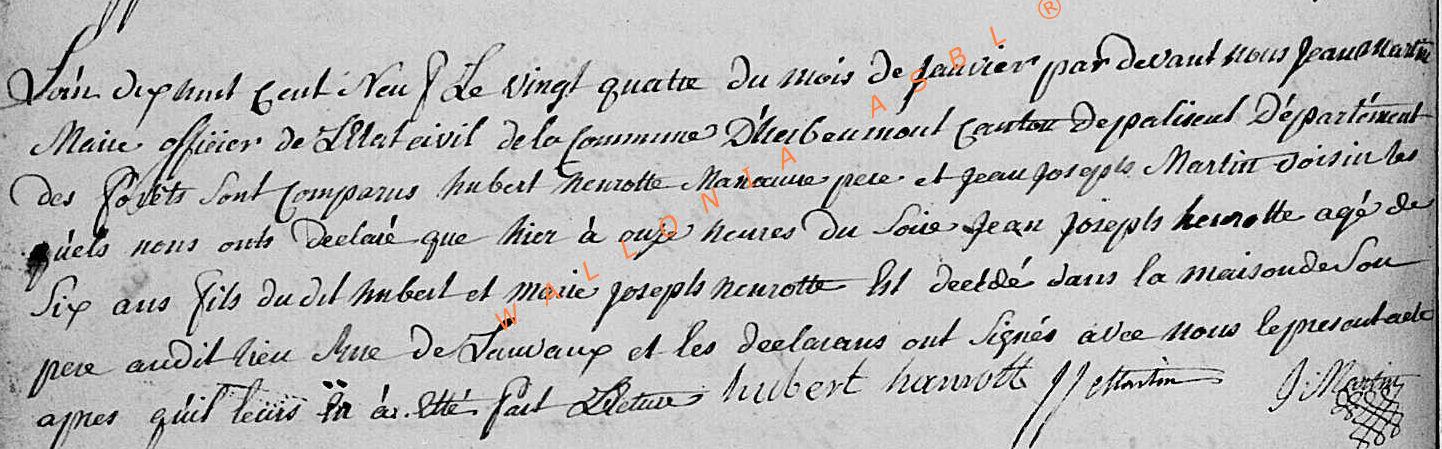 L'an dix huit Cent Neuf Le vingt quatre du mois de janvier par devant nous Jean Martin
Maire officier de L'Etat civil de la Commune D'herbeumont Canton de paliseul Département
des forêts sont Comparus hubert henrotte Manoeuvre pere et jean joseph Martin voisin les
quels nous onts declaré que hier à onze heures du soire Jean joseph henrotte agé de
Six ans fils du dit hubert et marie joseph henrotte Est decédé dans la maison de son
pere audit lieu Rue de et les declarans ont signés avec nous le present acte
apres qu'il leurs en à etté fait Lecture hubert hanrott JJ Martin J: Martin
WALLONIA ASBL ®